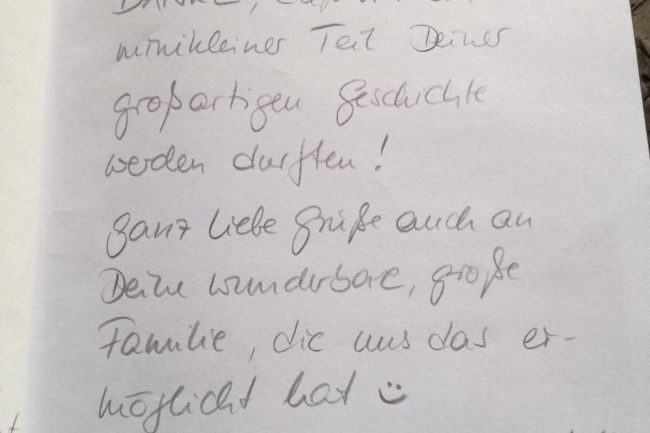 DANKE,
minikleiner Teil Deiner
großartigen Geschichte
werden durften!
ganz liebe Grüße auch an
Deine wunderbare, große
Familie, die uns das er-
möglicht hat :)